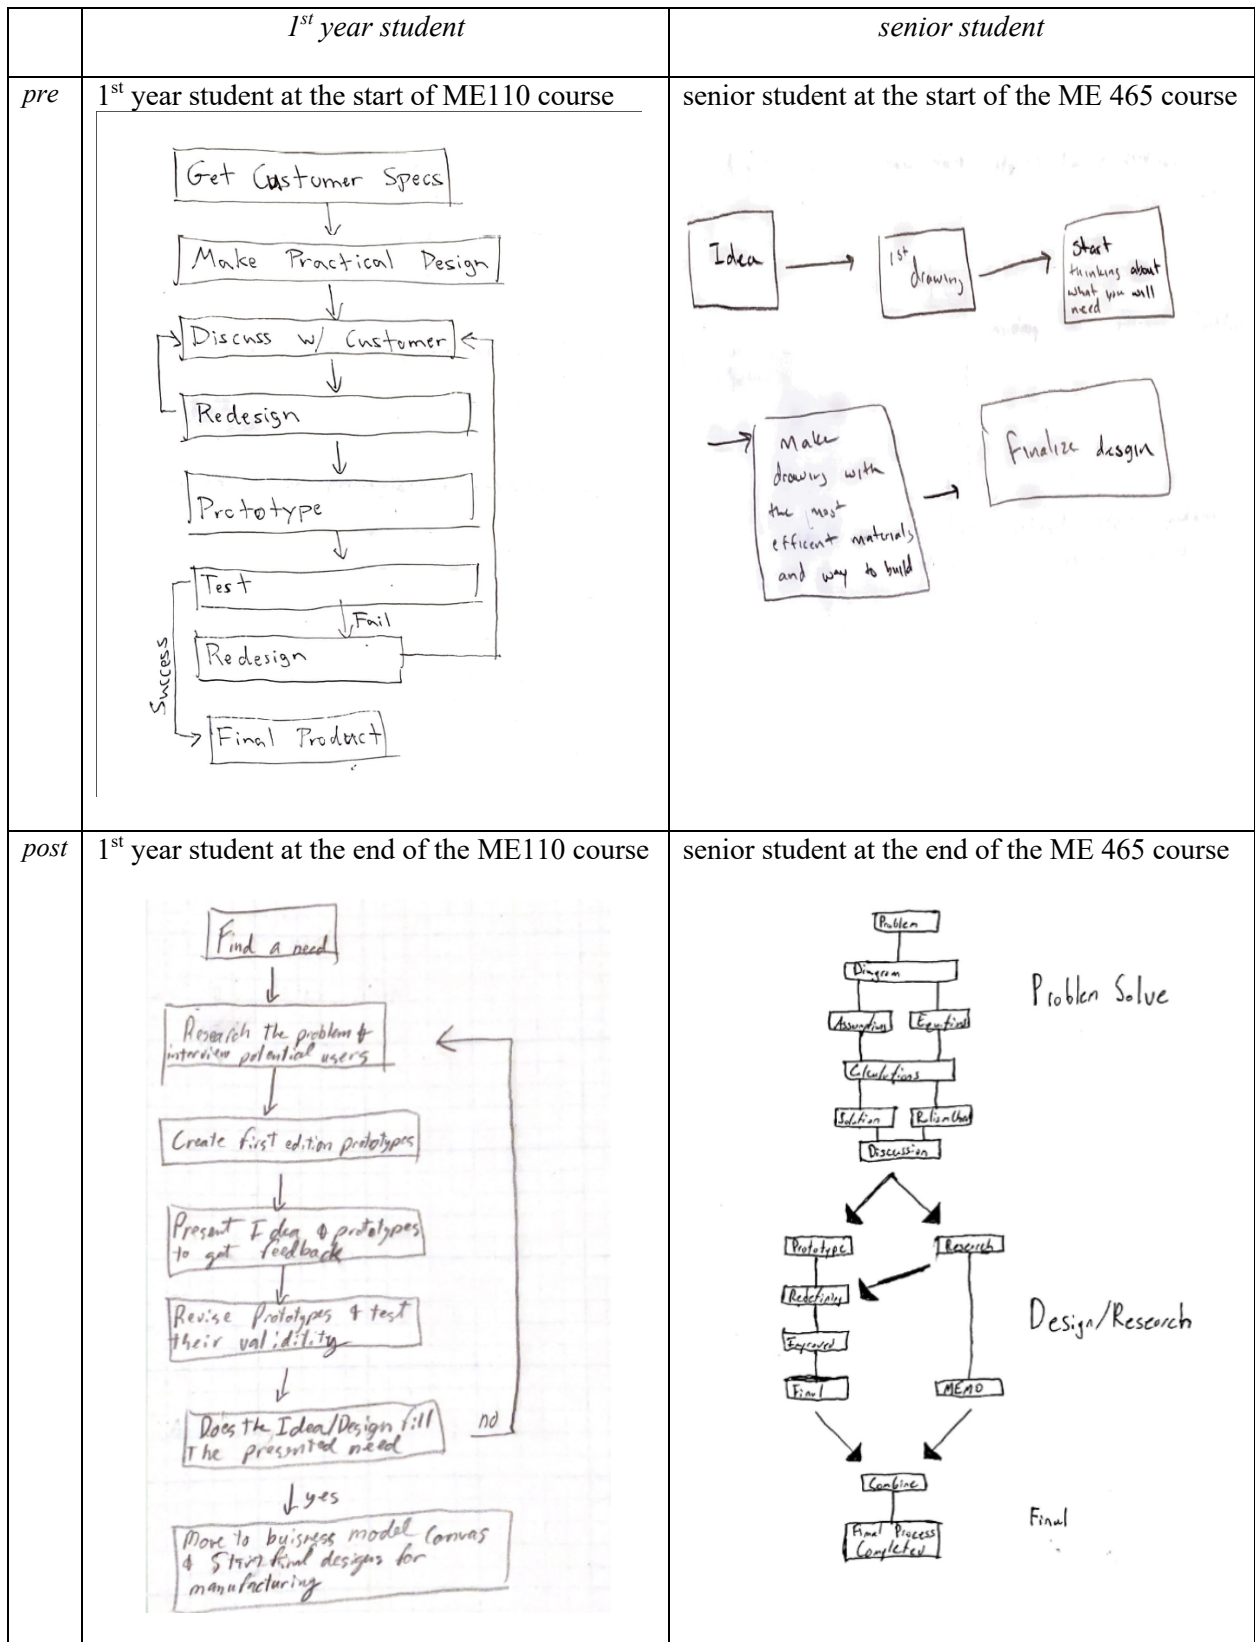 1st year student
senior student
pre
1st year student at the start of ME110 course
Get Customer Specs
Make Practical Design
Discuss w/ Customer
Redesign
Prototype
Test
Fail
Redesign
Success
Final Product
senior student at the start of the ME 465 course
Idea
1st
drawing
Start
thinking about
what you will
need
Make
drawing with
the most
efficent materials
and way to build
Finalize desgin
post
1st year student at the end of the ME110 course
Find a need
Research the problem &
interview potential users
Create first edition prototypes
Present Idea & prototypes
to get feedback
Revise Prototypes & test
their validility
Does the Idea/Design fill
The presented need
no
yes
Move to buisness model Canvas
& final designs for
manufacturing
senior student at the end of the ME 465 course
Problem
Diagram
Assumptions Equations
Calculations
Solution
Discussion
Problem Solve
Prototype Research
Final MEMO
Design/Research
Combine
Final Process
Completed
Final